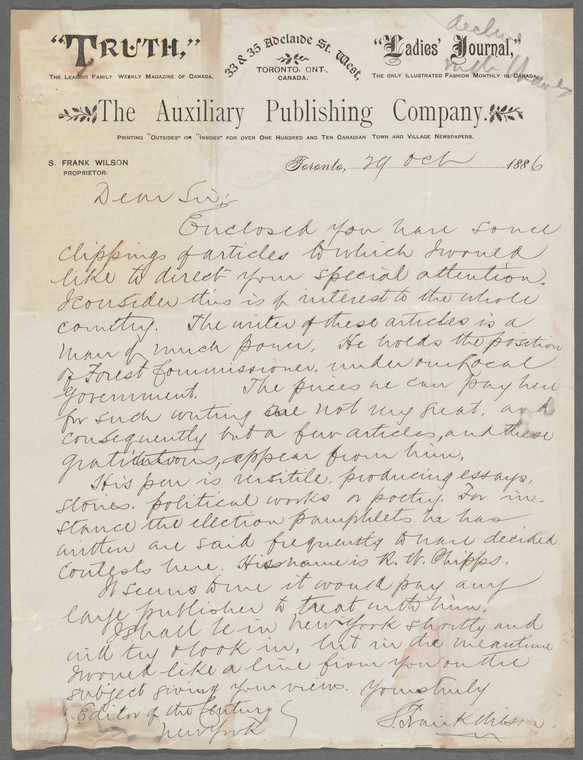 "TRUTH,"
THE LEADING FAMILY WEEKLY MAGAZINE OF CANADA.
33 & 35 Adelaide St. West,
TORONTO, ONT.,
CANADA.
"Ladies' Journal,"
THE ONLY ILLUSTRATED FASHION MONTHLY IN CANADA.
declined
with thanks
The Auxiliary Publishing Company.
PRINTING "OUTSIDES" OR "INSIDES" FOR OVER ONE HUNDRED AND TEN CANADIAN TOWN AND VILLAGE NEWSPAPERS.
S. FRANK WILSON
PROPRIETOR.
Toronto, 29 Oct 1886
Dear Sir;
Enclosed you have some
clippings of articles to which I would
like to direct your special attention.
I consider this is of interest to the whole
country. The writer of these articles is a
man of much power. He holds the position
of Forest Commissioner, under our Local
Government. The prices we can pay here
for such writing are not very great, and
consequently but a few articles, and these
gratuitous, appear from him.
His pen is versitile, producing essays,
stories, political works or poetry. For in-
stance the election pamphlets he has
written are said frequently to have decided
contests here. His name is R. W. Phipps.
It seems to me it would pay any
large publisher to treat with him.
I shall be in New York shortly and
will try & look in, but in the meantime
I would like a line from you on the
subject giving your views. Yours truly
Editor of the Century
New York
S. Frank Wilson